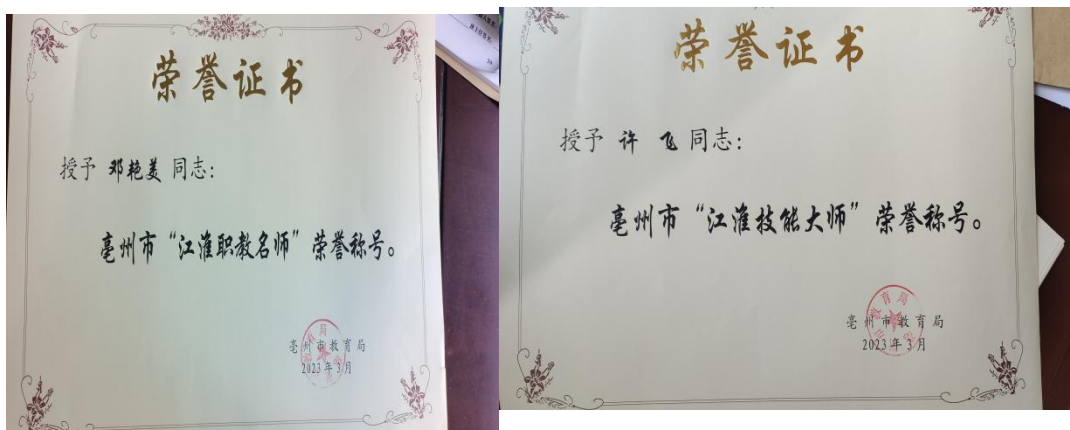 荣誉证书
授予 邓艳美 同志：
亳州市“江淮职教名师”荣誉称号。
亳州市教育局
2023年3月
荣誉证书
授予 许 飞 同志：
亳州市“江淮技能大师”荣誉称号。
亳州市教育局
2023年3月